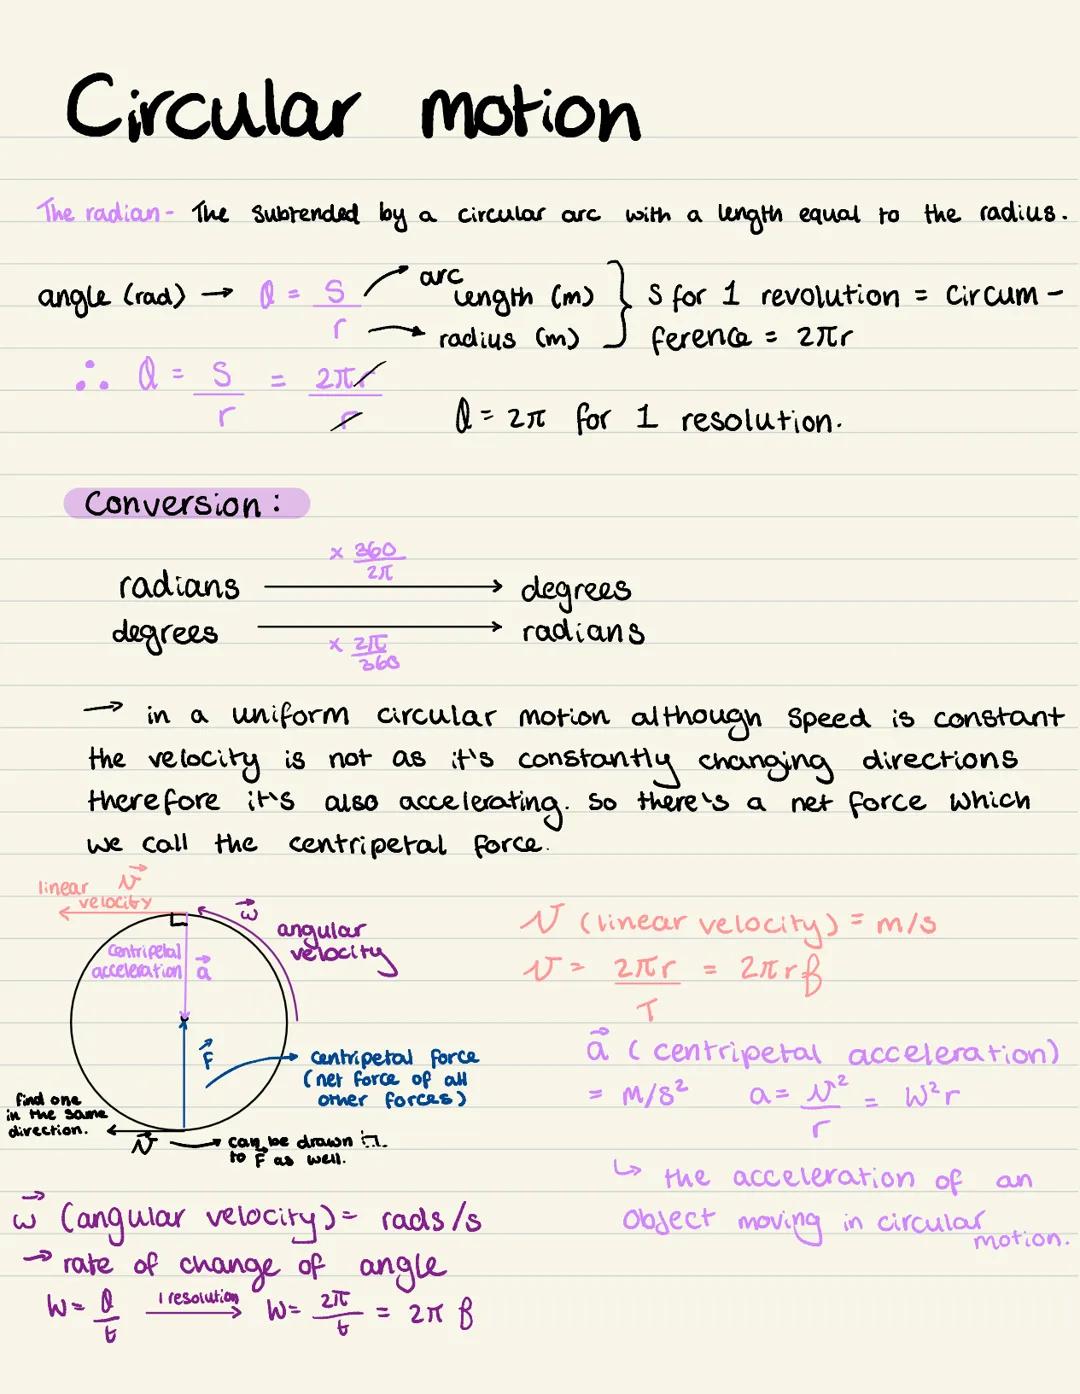 Circular motion
The radian - The subtended by a circular arc with a length equal to the radius.
angle (rad) → θ = S/r
arc length (m)
radius (m)
} S for 1 revolution = circum-
ference = 2πr
∴ θ = S/r = 2πr/r
θ = 2π for 1 resolution.
Conversion :
× 360/2π
radians → degrees
degrees → radians
× 2π/360
→ in a uniform circular motion although speed is constant
the velocity is not as it's constantly changing directions
therefore it's also accelerating. so there's a net force which
we call the centripetal force.
linear v⃗
velocity
ω⃗
angular
velocity
centripetal
acceleration a⃗
F⃗
centripetal force
(net force of all
other forces)
find one
in the same
direction.
v⃗ → can be drawn
to F⃗ as well.
v (linear velocity) = m/s
v = 2πr/T = 2πrf
a⃗ (centripetal acceleration)
= m/s² a = v²/r = w²r
↳ the acceleration of an
object moving in circular
motion.
ω⃗ (angular velocity) = rads/s
→ rate of change of angle
w = θ/t 1 resolution → w = 2π/t = 2π f